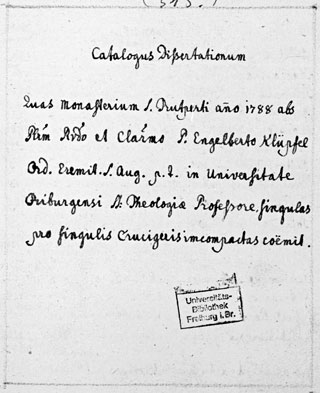 (313.)
Catalogus Dissertationum
Quas Monasterium S. Ruperti año 1788 abs
Plrim Rvdo et Clarmo P. Engelberto Klüpfel
Ord. Eremit. S. Aug. p. t. in Universitate
Friburgensi SS. Theologiæ Professore, singulas
pro singulis Crucigeris incompactas coëmit.
Universitäts-
Bibliothek
Freiburg i. Br.